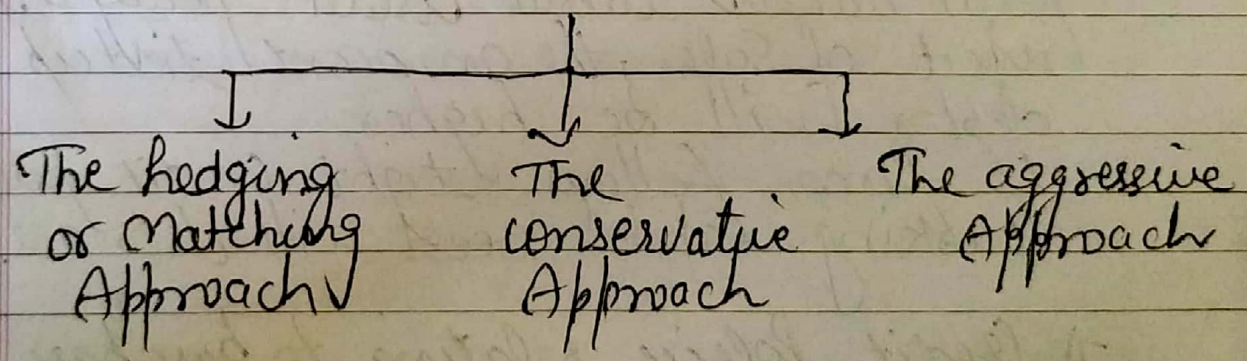 The hedging
or Matching
Approach
The
conservative
Approach
The aggressive
Approach